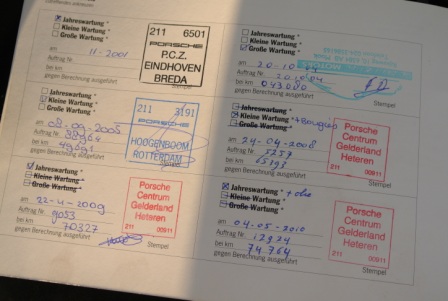 Jahreswartung *
Kleine Wartung *
Große Wartung *
am 11-2001
Auftrag Nr.
bei km
gegen Berechnung ausgeführt
Stempel
211 6501
PORSCHE
P.C.Z.
EINDHOVEN
BREDA
Jahreswartung *
Kleine Wartung *
Große Wartung *
am 20-10-04
Auftrag Nr. 20.10.04
bei km 043080
gegen Berechnung ausgeführt
Stempel
Jahreswartung *
Kleine Wartung *
Große Wartung *
am 08-09-2005
Auftrag Nr. 38964
bei km 49691
gegen Berechnung ausgeführt
211 3191
PORSCHE
HOOGENBOOM
ROTTERDAM
Stempel
Jahreswartung *
Kleine Wartung *
Große Wartung *
am 24-04-2008
Auftrag Nr. 7257
bei km 65197
gegen Berechnung ausgeführt
Porsche
Centrum
Gelderland
Heteren
211 00911
Stempel
Jahreswartung *
Kleine Wartung *
Große Wartung *
am 22-4-2009
Auftrag Nr. 9053
bei km 70327
gegen Berechnung ausgeführt
Porsche
Centrum
Gelderland
Heteren
211 00911
Stempel
Jahreswartung * + olie
Kleine Wartung *
Große Wartung *
am 04-05-2010
Auftrag Nr. 12924
bei km 74.764
gegen Berechnung ausgeführt
Porsche
Centrum
Gelderland
Heteren
211 00911
Stempel